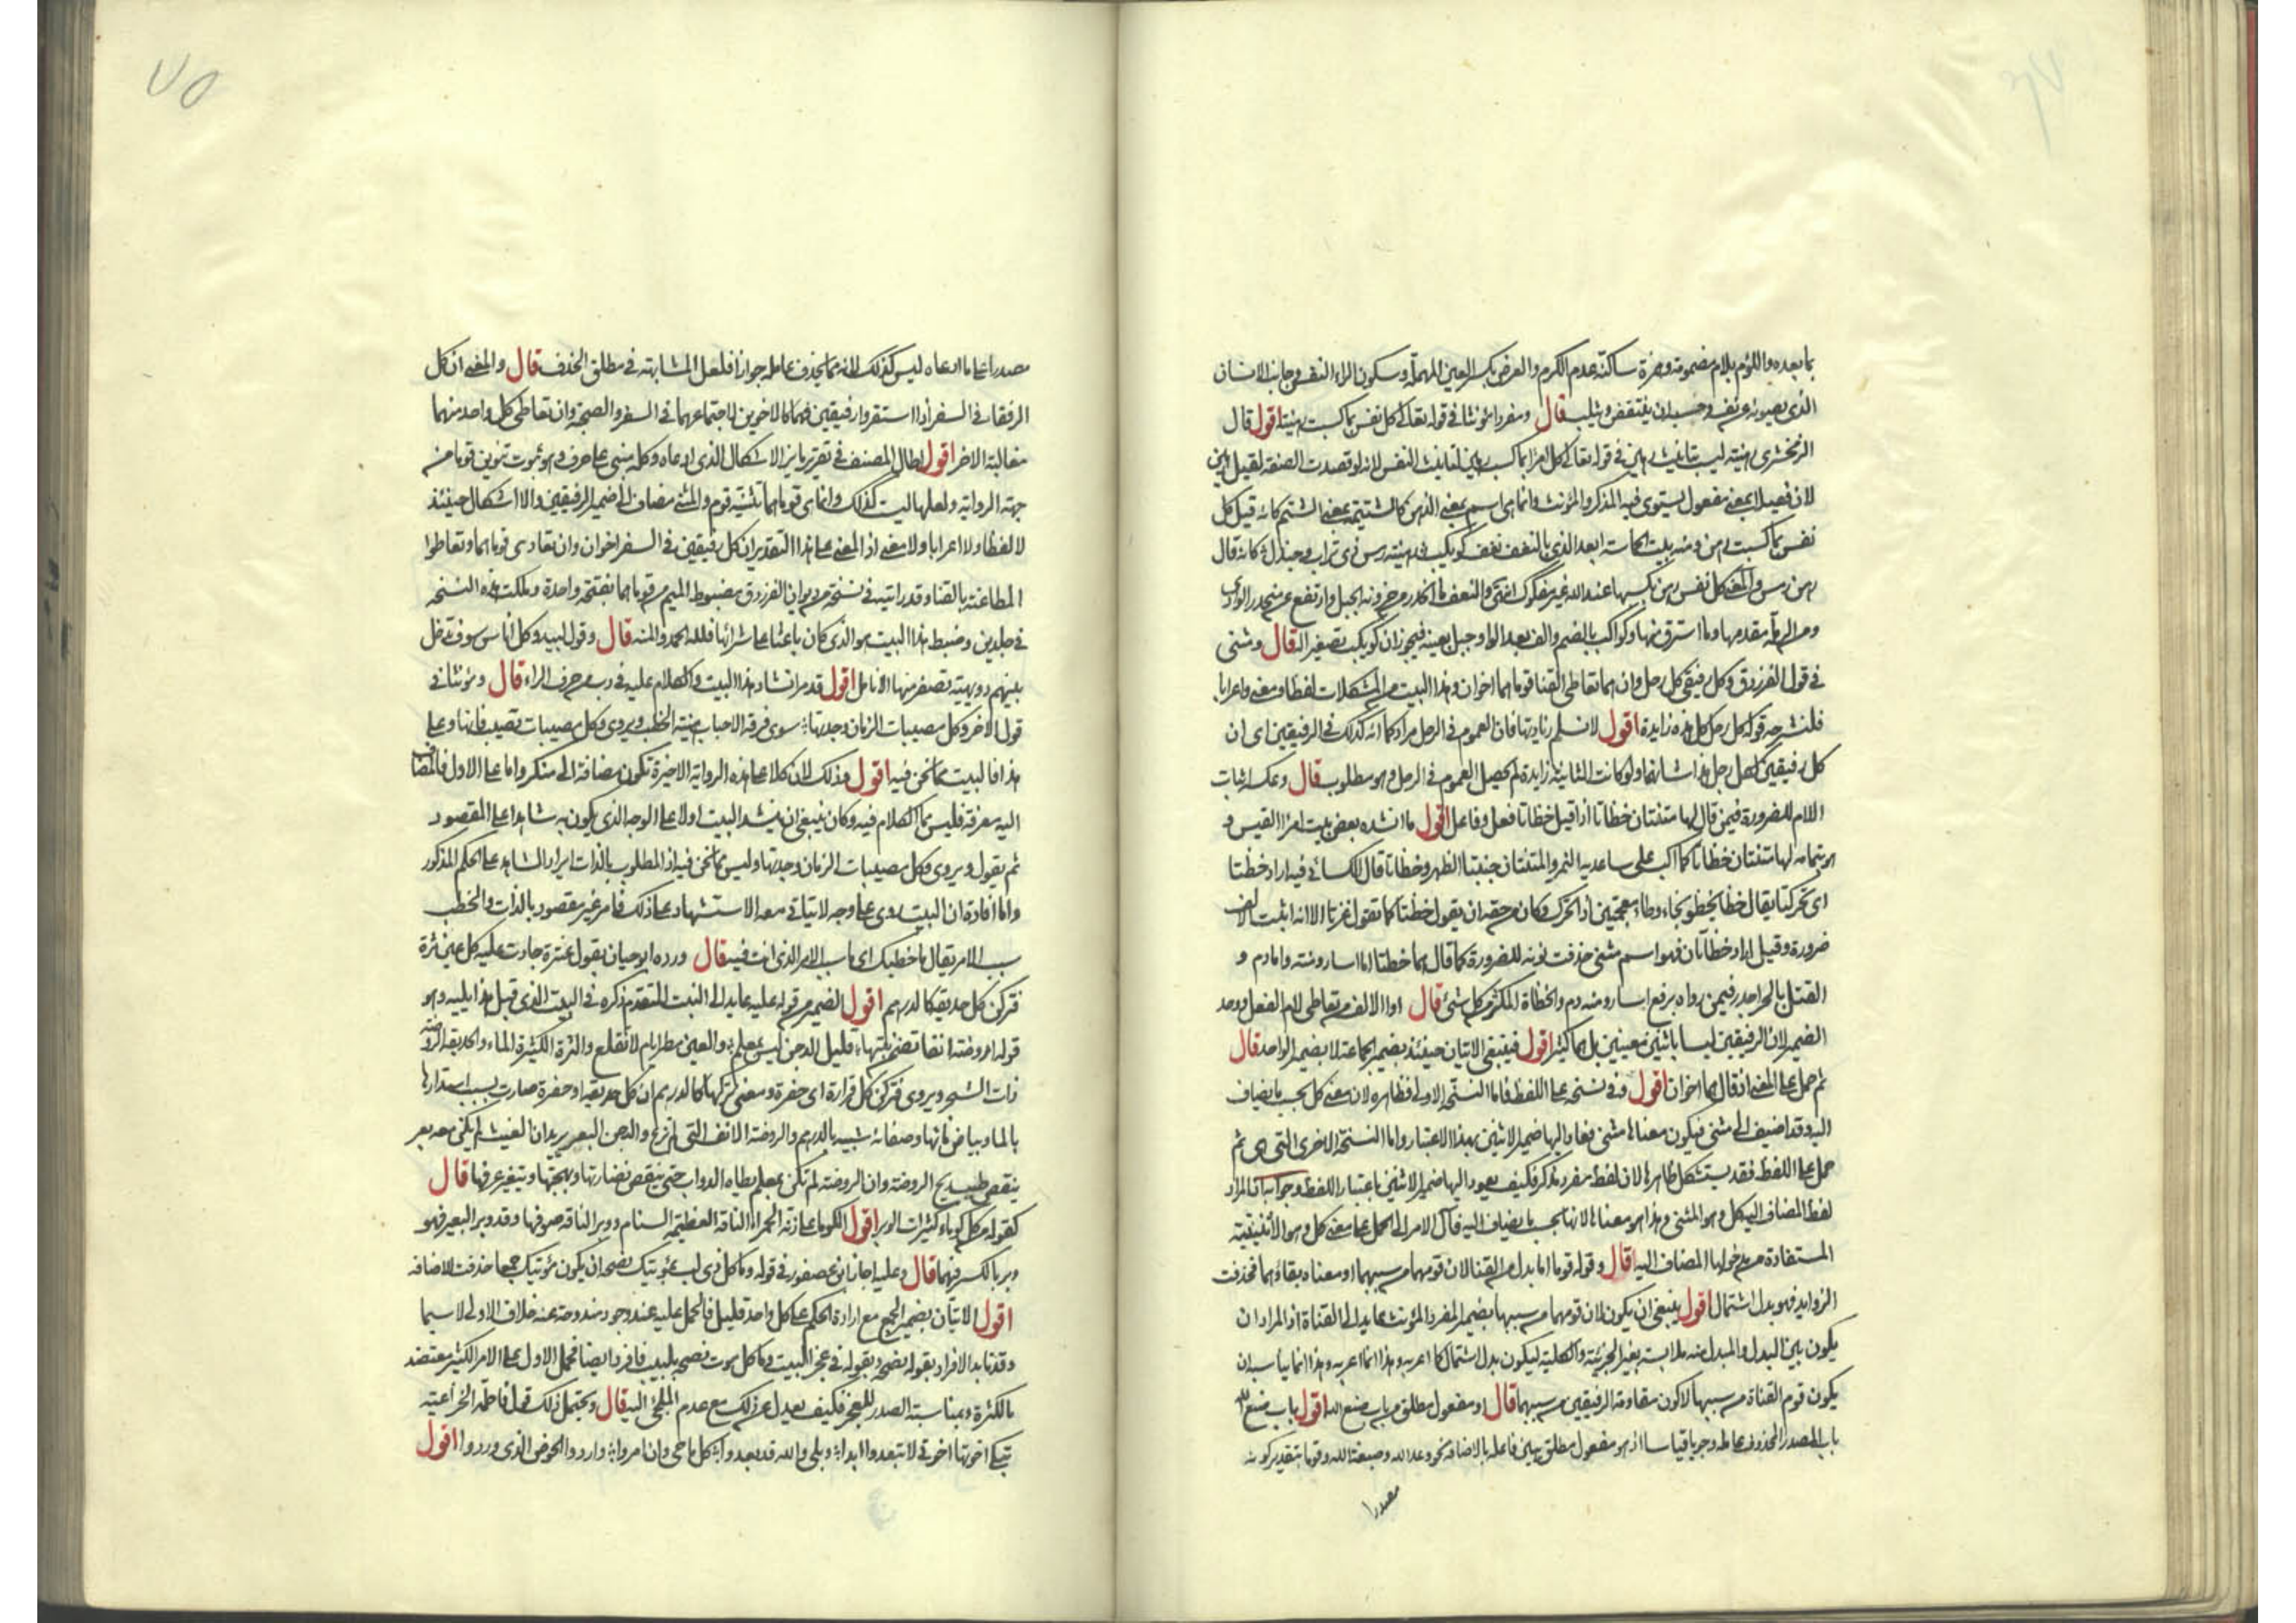 بما بعده واللؤم بلام مضمومة وهمزة ساكنة عدم الكرم والعرض بكسر العين المهملة وسكون الراء النفس وجانب الانسان
الذى يصونه من نفسه وحسبه ان ينتقص ويثلب قال ومفردا مؤنثا فى قوله تعالى كل نفس بما كسبت رهينة اقول قال
الزمخشرى رهينة ليست بتانيث رهين فى قوله تعالى كل امرئ بما كسب رهين لتانيث النفس لانه لو قصدت الصفة لقيل رهين
لان فعيلا بمعنى مفعول يستوى فيه المذكر والمؤنث وانما هى اسم بمعنى الرهن كالشتيمة بمعنى الشتم كانه قيل كل
نفس بما كسبت رهن ومنه بيت الحماسة ابعد الذى بالنعف نعف كويكب رهينة رمس ذى تراب وجندل كانه قال
رهن رمس والمعنى كل نفس رهن بكسبها عند الله غير مفكوك انتهى والنعف ما انحدر من حزونة الجبل وارتفع عن منحدر الوادى
ومن الرملة مقدمها وما استرق منها وكواكب بالضم والف بعد الواو جبل بعينه فيجوز ان كويكب تصغير له قال ومثنى
فى قول الفرزدق وكل رفيقى كل رحل وان هما تعاطى القنا قوماهما اخوان وهذا البيت من المشكلات لفظا ومعنى واعرابا
فلنشرحه قوله كل رحل كل هذه زايدة اقول لا نسلم زيادتها فان العموم فى الرحل مراد كما انه كذلك فى الرفيقين اى ان
كل رفيقين لكل رحل هذا شانهما ولو كانت الثانية زايدة لم يحصل العموم فى الرحل وهو مطلوب قال وعكسه اثبات
اللام للضرورة فيمن قال لها متنتان خظاتا اذا قيل خظاتا فعل وفاعل اقول ما انشده بعض بيت امرا القيس و
هو بتمامه لها متنتان خظاتا كما اكب على ساعديه النمر والمتنتان جنبتا الظهر وخظاتا قال الكسائى فيه اراد خظتا
اى تحركتا يقال خظا يخظو بخاء وظاء معجمتين اذا تحرك وكان من حقه ان يقول خظتا كما تقول غزتا الا انه اثبت الالف
ضرورة وقيل اراد خظاتان فهو اسم مثنى حذفت نونه للضرورة كما قال هما خطتا اما اسار ومنة واما دم و
القتل بالحر اجدر فيمن رواه برفع اسار ومنة ودم والخظاة المكتنز من كل شئ قال او الالف من تعاطى لام الفعل ووحد
الضمير لان الرفيقين ليسا باثنين معينين بل هما كثير اقول فينبغى الاتيان حينئذ بضمير الجماعة لا بضمير الواحد قال
ثم حمل على المعنى اذ قال هما اخوان اقول وفى نسخة على اللفظ فاما النسخة الاولى فظاهره لان معنى كل بحسب ما يضاف
اليه وقد اضيف الى مثنى فيكون معناها مثنى فعاد اليها ضمير الاثنين بهذا الاعتبار واما النسخة الاخرى التى هى ثم
حمل على اللفظ فقد يستشكل ظاهرها لان لفظ مفرد مذكر فكيف يعود اليها ضمير الاثنين باعتبار اللفظ وجوابه ان المراد
لفظ المضاف اليه كل وهو المثنى وهذا هو معناها لانها بحسب ما يضاف اليه فآل الامر الى الحمل على معنى كل وهو الاثنينية
المستفادة من مدخولها المضاف اليه قال وقوله قوما اما بدل من القنا لان قومهما من سببهما او معناه بقاؤهما فحذفت
الزوايد فهو بدل اشتمال اقول ينبغى ان يكون لان قومهما من سببها بضمير المفرد المؤنث عايد الى القناة اذ المراد ان
يكون بين البدل والمبدل منه ملابسة بغير الجزئية والكلية ليكون بدل اشتمال كما اعربه وهذا انما اعربه وهذا انما يناسب ان
يكون قوم القناة من سببها لا كون مقاومة الرفيقين من سببهما قال او مفعول مطلق من باب صنع الله اقول باب صنع الله
باب المصدر المحذوف عامله وجوبا قياسا اذ هو مفعول مطلق بين فاعله بالاضافة نحو وعد الله وصبغة الله وقوما بتقدير كونه
مصدرا
مصدرا على ما ادعاه ليس كذلك لانه مما يحذف عامله جوازا فلعل المشابهة فى مطلق الحذف قال والمعنى ان كل
الرفقا فى السفر اذا استقروا رفيقين فهما كالاخوين لاجتماعهما فى السفر والصحبة وان تعاطى كل واحد منهما
مغالبة الاخر اقول اطال المصنف فى تقرير ما يزيل الاشكال الذى ادعاه وكله مبنى على حرف وهو ثبوت تنوين قوما من
جهة الرواية ولعلها ليست كذلك وانما هى قوماهما تثنية قوم والمثنى مضاف الى ضمير الرفيقين والا اشكال حينئذ
لا لفظا ولا اعرابا ولا معنى اذ المعنى على هذا التقدير ان كل رفيقين فى السفر اخوان وان تعادى قوماهما وتعاطوا
المطاعنة بالقنا وقد رايته فى نسخة من ديوان الفرزدق مضبوط الميم من قوماهما بفتحة واحدة وملكت هذه النسخة
فى جلدين وضبط هذا البيت هو الذى كان باعثا على شرائها فلله الحمد والمنة قال وقول لبيد وكل اناس سوف تدخل
بينهم دويهية تصفر منها الانامل اقول قد مر انشاد هذا البيت والكلام عليه فى رب من حرف الراء قال ومؤنثا فى
قول الاخر وكل مصيبات الزمان وجدتها سوى فرقة الاحباب هينة الخطب ويروى وكل مصيبات تصيب فانها وعلى
هذا فالبيت مما نحن فيه اقول وذلك لان كلا على هذه الرواية الاخيرة تكون مضافة الى منكر واما على الاول فالمضاف
اليه معرفة فليس مما الكلام فيه وكان ينبغى ان ينشد البيت اولا على الوجه الذى يكون به شاهدا على المقصود
ثم يقول ويروى وكل مصيبات الزمان وجدتها وليس مما نحن فيه اذ المطلوب بالذات ايراد الشاهد على الحكم المذكور
واما افادة ان البيت روى على وجه لا يتاتى معه الاستشهاد على ذلك فامر غير مقصود بالذات والخطب
سبب الامر يقال ما خطبك اى ما سبب الامر الذى انت فيه قال ورده ابو حيان بقول عنترة جادت عليه كل عين ثرة
فتركن كل حديقة كالدرهم اقول الضمير من قوله عليه عايد الى النبت المتقدم ذكره فى البيت الذى قبل هذا يليه وهو
قوله او روضة انفا تضمن نبتها قليل الدمن ليس بمعلم والعين مطر ايام لا تقلع والثرة الكثيرة الماء والحديقة الروضة
ذات الشجر ويروى فتركن كل قرارة اى حفرة ومعنى تركها كالدرهم ان كل حديقة او حفرة صارت بسبب استدارتها
بالماء وبياض مائها وصفائه شبيه بالدرهم والروضة الانف التى لم ترع والدمن البعر يريد ان الغيث لم يكن معه بعر
ينقص طيب ريح الروضة وان الروضة لم تكن بمعلم يطاه الدواب حتى ينقص نضارتها وبهجتها ويتغير عرفها قال
كقوله من كل كوماء كثيرات الوبر اقول الكوماء على زنة الحمراء الناقة العظيمة السنام ووبر الناقة صوفها وقد وبر البعير فهو
وبر بالكسر فيهما قال وعليه اجاز ابن عصفور فى قوله وما كل ذى لب بمؤتيك نصحه ان يكون مؤتيك جمعا حذفت للاضافة
اقول الاتيان بضمير الجمع مع ارادة الحكم على كل واحد قليل فالحمل عليه عند وجود مندوحة عنه خلاف الاولى لا سيما
وقد تايد الافراد بقوله نصحه وبقوله فى عجز البيت وما كل مؤت نصحه بلبيب فافرد ايضا فحمل الاول على الامر الكثير معتضد
بالكثرة وبمناسبة الصدر للعجز فكيف يعدل عن ذلك مع عدم الملجئ اليه قال ويحتمل ذلك قول فاطمة الخزاعية
تبكى اخوتها اخوتى لا تبعدوا ابدا وبلى والله قد بعدوا كل ما حى وان امروا واردوا الحوض الذى وردوا اقول